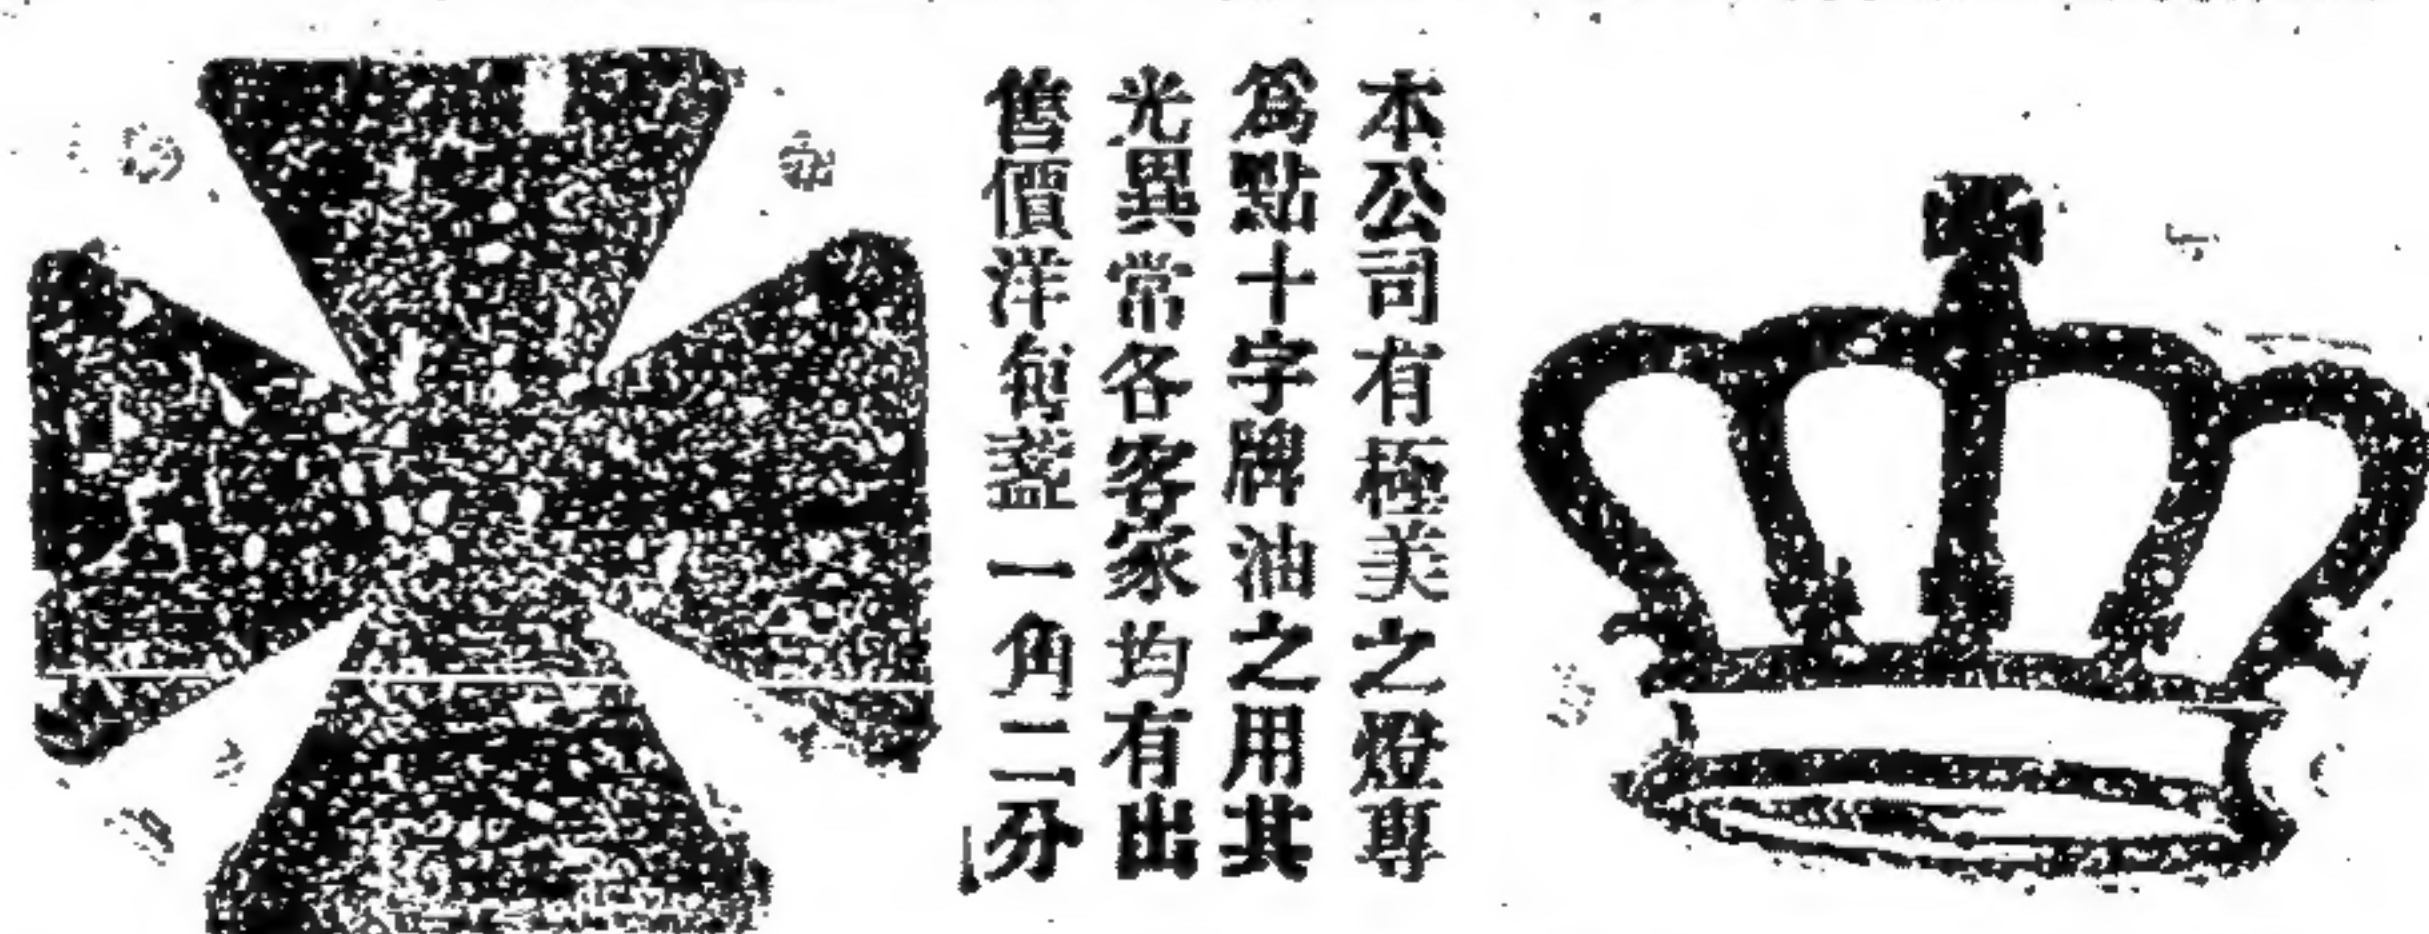 本公司有極美之燈専
爲點十字牌油之用其
光異常各客家均有出
售價洋每盞一角二分